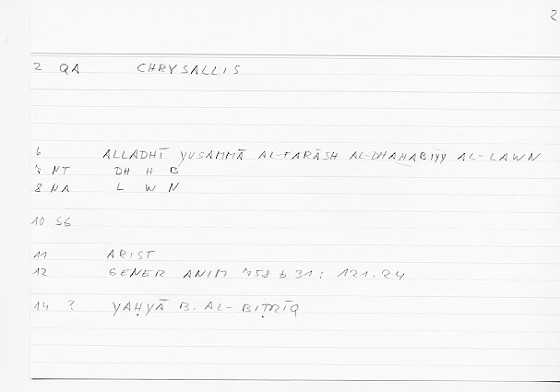 2
2 QA CHRYSALLIS
6 ALLADHĪ YUSAMMĀ AL-FARĀSH AL-DHAHABIYY AL-LAWN
7 NT DH H B
8 NA L W N
10 SG
11 ARIST
12 GENER ANIM 758 b 31 : 121.24
14 ? YAḤYĀ B. AL-BIṬRĪQ